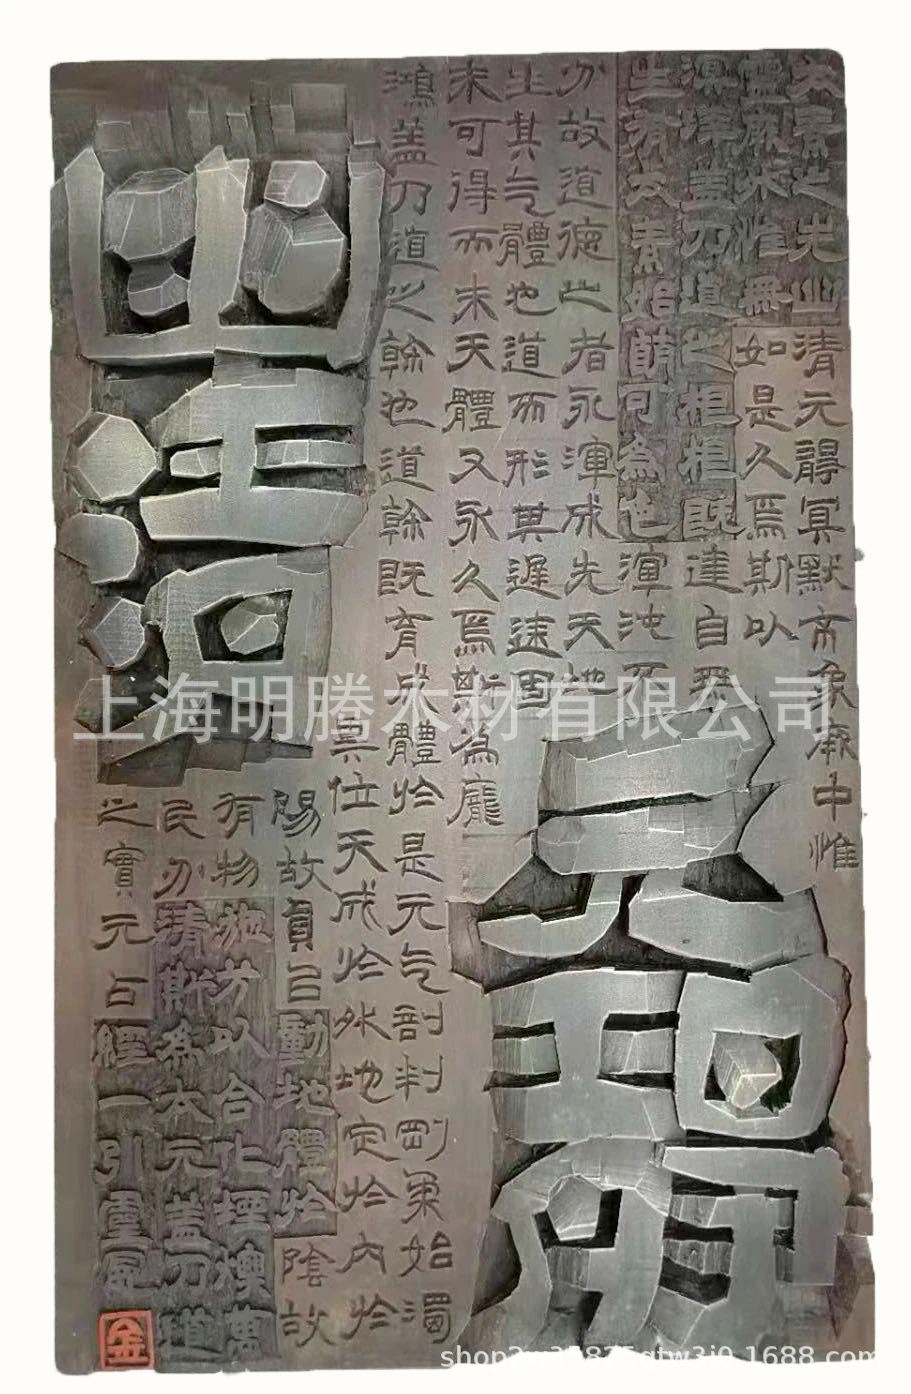 太素之先幽清元靜冥默帝象厥中惟
靈厥外惟無如是久焉斯以
溟涬蓋乃道之根根既達自無
生有太素始萌可為也渾沌不
分故道德之者永渾成先天地
生其气體也道而形其遲速固
未可得而未天體又永久焉斯為龐
鴻蓋乃道之幹也道幹既育成體於是元气剖判剛柔始濁
異位天成於外地定於內於
陽故員以動地體於陰故
有物施以合化堙燠萬
民分清斯為本元蓋乃道
之實元占經一引靈憲
幽清
金
上海明腾木材有限公司